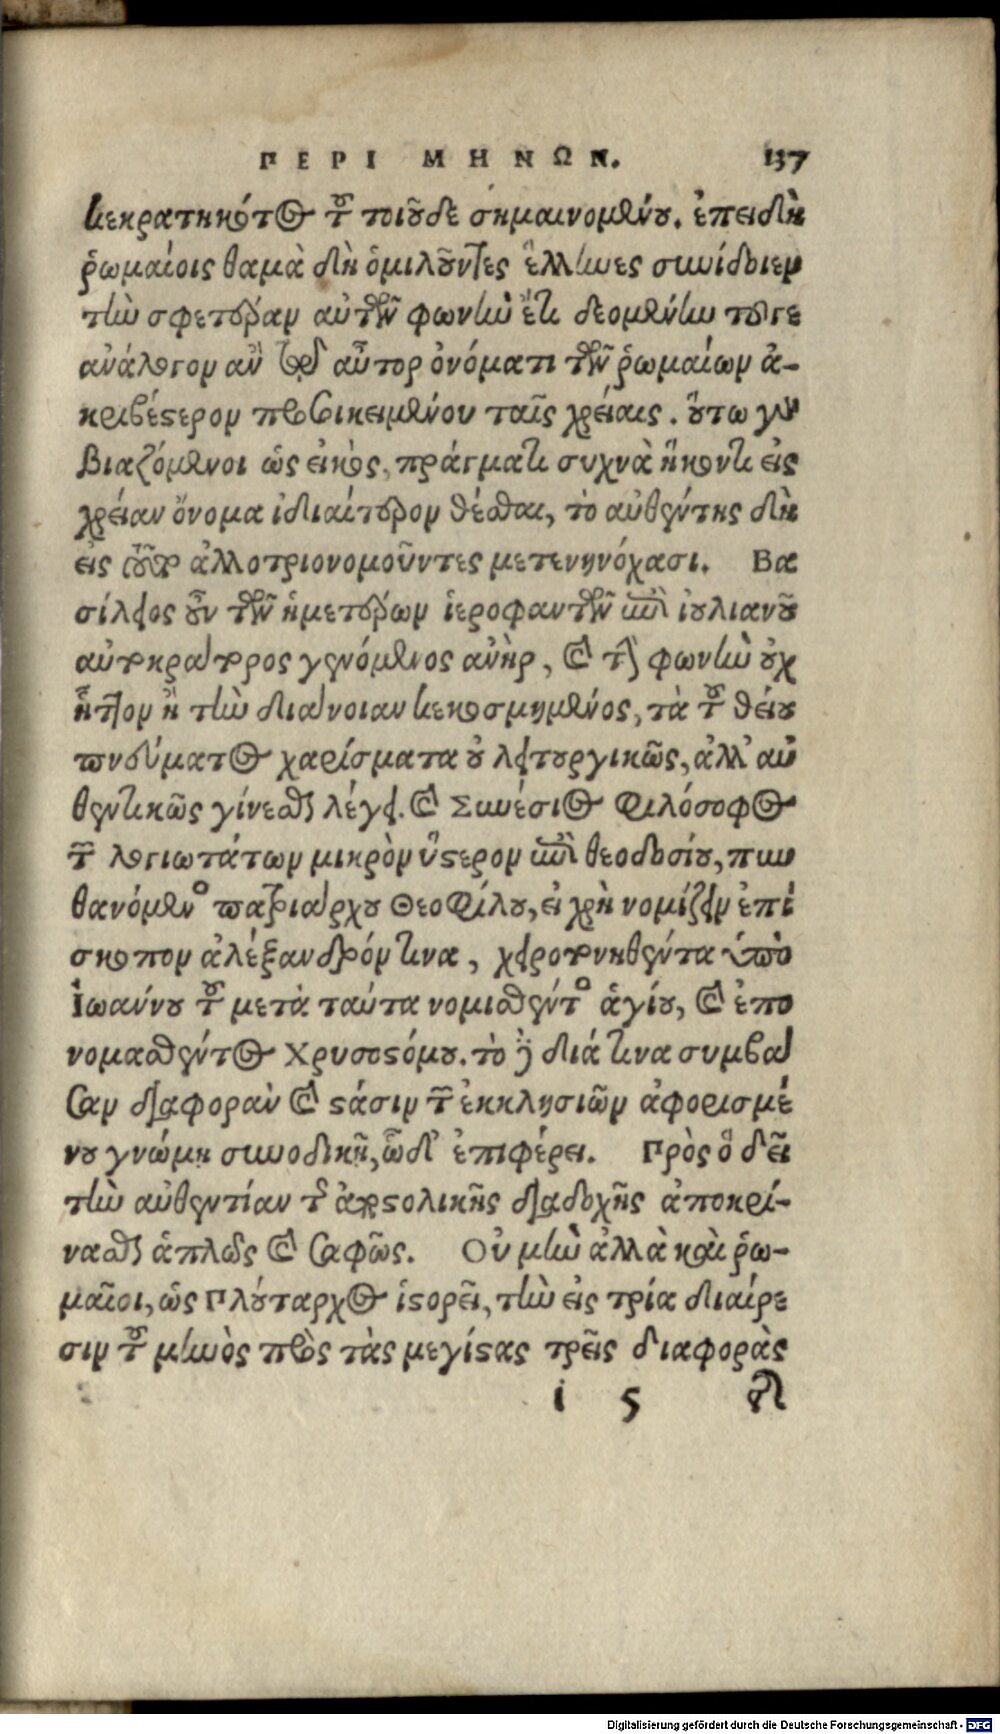 ΠΕΡΙ ΜΗΝΩΝ. 137
κεκρατηκότος τοῦ τοιοῦδε σημαινομένου. ἐπειδὴ
ῥωμαίοις θαμὰ δὴ ὁμιλοῦντες ἕλληνες συνίδοιεν
τὴν σφετέραν αὐτῶν φωνὴν ἔτι δεομένην τοῦγε
ἀνάλογον αὖ αὖτορ ὀνόματι τῶν ῥωμαίων ἀ-
κριβέστερον προσικειμένου ταῖς χρείαις. οὕτω γοῦν
βιαζόμενοι ὡς εἰκὸς, πράγματι συχνὰ ἥκοντι εἰς
χρείαν ὄνομα ἰδιαίτερον θέσθαι, τὸ αὐθέντης δὴ
εἰς τοῦτο ἀλλοτριονομοῦντες μετενηνόχασι. Βα
σίλειος οὖν τῶν ἡμετέρων ἱεροφαντῶν ἐπὶ ἰουλιανοῦ
αὐτοκράτορος γενόμενος ἀνὴρ, καὶ τὴν φωνὴν οὐχ
ἧττον ἢ τὴν διάνοιαν κεκοσμημένος, τὰ τοῦ θείου
πνεύματος χαρίσματα οὐ λειτουργικῶς, ἀλλ' αὐ
θεντικῶς γίνεσθαι λέγει. καὶ Συνέσιος φιλόσοφος
τῶν λογιωτάτων μικρὸν ὕστερον ἐπὶ θεοδοσίου, πυν
θανόμενος πατριάρχου Θεοφίλου, εἰ χρὴ νομίζειν ἐπί
σκοπον ἀλέξανδρόν τινα, χειροτονηθέντα ὑπὸ
Ἰωάννου τοῦ μετὰ ταῦτα νομισθέντος ἁγίου, καὶ ἐπο
νομασθέντος Χρυσοστόμου. τὸ δὲ διά τινα συμβᾶ
σαν διαφορὰν καὶ στάσιν τῶν ἐκκλησιῶν ἀφορισμέ
νου γνώμῃ συνοδικῇ, ὧδ' ἐπιφέρει. Πρὸς ὃ δεῖ
τὴν αὐθεντίαν τῆς ἀποστολικῆς διαδοχῆς ἀποκρί-
νασθαι ἁπλῶς καὶ σαφῶς. Οὐ μὴν ἀλλὰ καὶ ῥω-
μαῖοι, ὡς Πλούταρχος ἱστορεῖ, τὴν εἰς τρία διαίρε
σιν τοῦ μηνὸς πρὸς τὰς μεγίστας τρεῖς διαφορὰς
i 5
Digitalisierung gefördert durch die Deutsche Forschungsgemeinschaft - DFG